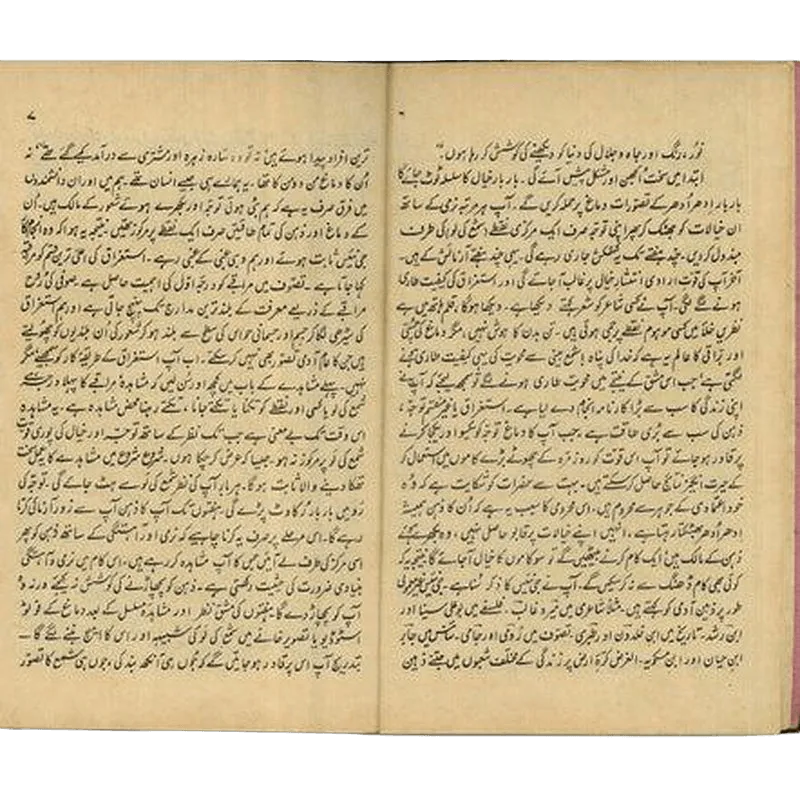 نور، رنگ اور جاہ و جلال کی دنیا کو دیکھنے کی کوشش کر رہا ہوں۔"
ابتدا میں سخت الجھن اور مشکل پیش آئے گی۔ بار بار خیال کا سلسلہ ٹوٹ جائے گا
بار بار اِدھر اُدھر کے تصورات دماغ پر حملہ کریں گے، آپ ہر مرتبہ نرمی کے ساتھ
ان خیالات کو جھٹک کر پھر اپنی توجہ صرف ایک مرکزی نقطے (شمع کی لو) کی طرف
مبذول کر دیں۔ چند ہفتے تک یہ کشمکش جاری رہے گی۔ یہی چند ہفتے آزمائش کے ہیں۔
آخر آپ کی قوت ارادی انتشار خیال پر غالب آ جائے گی اور استغراق کی کیفیت طاری
ہونے لگے گی۔ آپ نے کسی شاعر کو شعر کہتے دیکھا ہے۔ دیکھا ہوگا، قلم ہاتھ میں ہے
نظریں خلا میں کسی موہوم نقطے پر جمی ہوئی ہیں۔ تن بدن کا ہوش نہیں، مگر دماغ کی
اور براقی کا عالم یہ ہے کہ خدا کی پناہ شمع بینی سے محویت کی یہی کیفیت طاری ہونے
لگتی ہے جب اس مشق کے نتیجے میں محویت طاری ہونے لگے تو سمجھ لیجئے کہ آپ نے
اپنی زندگی کا سب سے بڑا کارنامہ انجام دے لیا ہے۔ استغراق یا غیر منقسم توجہ،
ذہن کی سب سے بڑی طاقت ہے، جب آپ کا دماغ توجہ کو یکسو اور یکجا کرنے
پر قادر ہو جائے تو آپ اس قوت کو روز مرہ کے چھوٹے بڑے کاموں میں استعمال کر
کے حیرت انگیز نتائج حاصل کر سکتے ہیں۔ بہت سے حضرات کو شکایت ہے کہ وہ
خود اعتمادی کے جوہر سے محروم ہیں۔ اس محرومی کا سبب یہ ہے کہ اُن کا ذہن ہمیشہ
اِدھر اُدھر بھٹکتا رہتا ہے، انہیں اپنے خیالات پر قابو حاصل نہیں، وہ بکھرے ہوئے
ذہن کے مالک ہیں ایک کام کرنے بیٹھیں گے تو سو کاموں کا خیال آ جائے گا نتیجہ یہ کہ
کوئی بھی کام ڈھنگ سے نہ کر سکیں گے۔ آپ نے جی نئیس کا ذکر سنا ہے۔ جی نئیس
طور پر ذہین آدمی کو کہتے ہیں۔ مثلاً شاعری میں میر و غالب۔ فلسفے میں بوعلی سینا اور
ابن رشد۔ تاریخ میں ابن خلدون اور طبری۔ تصوف میں رومی اور جامی۔ سائنس میں جابر
ابن حیان اور ابن مسکویہ۔ الغرض کرۂ ارض پر زندگی کے مختلف شعبوں میں جتنے ذہین
۷
ترین افراد پیدا ہوئے ہیں نہ تو وہ ستارہ زہرہ اور مشتری سے درآمد کیے گئے تھے نہ
اُن کا دماغ من دو من کا تھا۔ یہ ہمارے ہی جیسے انسان تھے۔ ہم میں اور ان دانشمندوں
میں فرق صرف یہ ہے کہ ہم بٹی ہوئی توجہ اور بکھرے ہوئے شعور کے مالک ہیں۔ اُن
کے دماغ اور ذہن کی تمام طاقتیں صرف ایک نقطے پر مرکوز تھیں۔ نتیجہ یہ ہوا کہ وہ انجام کار
جی نئیس ثابت ہوئے اور ہم وہی غبی کے غبی رہے۔ استغراق کی اعلیٰ ترین قسم کو مراقبہ
کہا جاتا ہے۔ تصوف میں مراقبے کو درجہ اول کی اہمیت حاصل ہے۔ صوفی کی روح
مراقبے کے ذریعے معرفت کے بلند ترین مدارج تک پہنچ جاتی ہے اور ہم استغراق
کی سیڑھی لگا کر جسم اور جسمانی حواس کی سطح سے بلند ہو کر شعور کی اُن بلندیوں کو چھو لیتے
ہیں جن کا عام آدمی تصور بھی نہیں کر سکتے۔ اب آپ استغراق کے طریقۂ کار کو سمجھئے مگر
نہیں۔ پہلے مشاہدے کے باب میں کچھ اور سن لیں کہ مشاہدہ مراقبے کا پہلا درجہ ہے
شمع کی لو یا کسی اور نقطے کو تکنا یا تکتے جانا، تکتے رہنا محض مشاہدہ ہے۔ یہ مشاہدہ
اس وقت تک بے معنی ہے جب تک نظر کے ساتھ توجہ اور خیال کی پوری قوت
شمع کی لو پر مرکوز نہ ہو۔ جیسا کہ عرض کر چکا ہوں۔ شروع شروع میں مشاہدے کا یہ عمل سخت
تھکا دینے والا ثابت ہوگا۔ ہر بار آپ کی نظر شمع کی لو سے ہٹ جائے گی۔ توجہ کی
رو میں بار بار رکاوٹ پڑے گی۔ ہفتوں تک آپ کا ذہن آپ سے زور آزمائی کرتا
رہے گا۔ اس مرحلے پر صرف یہ کرنا چاہیے کہ نرمی اور آہستگی کے ساتھ ذہن کو پھر
اسی مرکز کی طرف لے آئیں جس کا آپ مشاہدہ کر رہے ہیں، اس کام میں نرمی و آہستگی
بنیادی ضرورت کی حیثیت رکھتی ہے۔ ذہن کو پچھاڑنے کی کوشش نہ کیجئے ورنہ وہ
آپ کو پچھاڑ دے گا ہفتوں کی مشق نظر اور مشاہدۂ مسلسل کے بعد دماغ کے فوٹو
اسٹوڈیو یا تصویر خانے میں شمع کی لو کی شبیہہ اور اس کا امیج بننے لگے گا۔
بتدریج آپ اس پر قادر ہو جائیں گے کہ جوں ہی آنکھ بند کی، جوں ہی شمع کا تصور